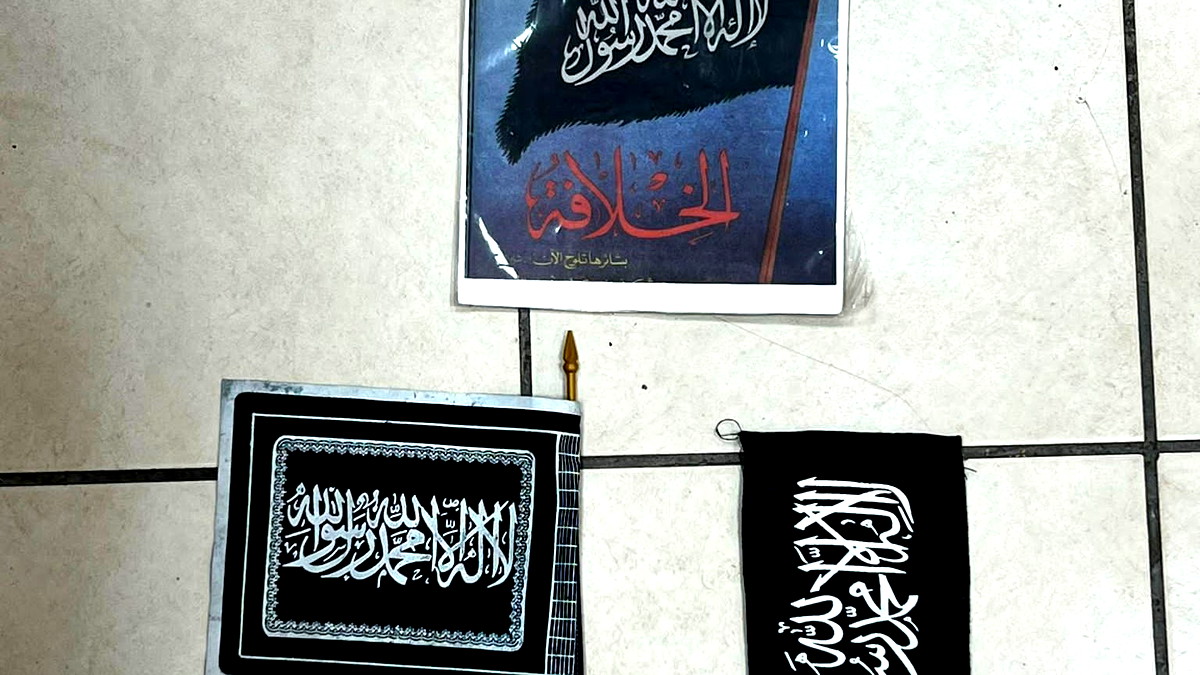 لا إله إلا الله محمد رسول الله
الخلافة
بشائرها تلوح الآن
لا إله إلا الله محمد رسول الله
لا إله إلا الله محمد رسو